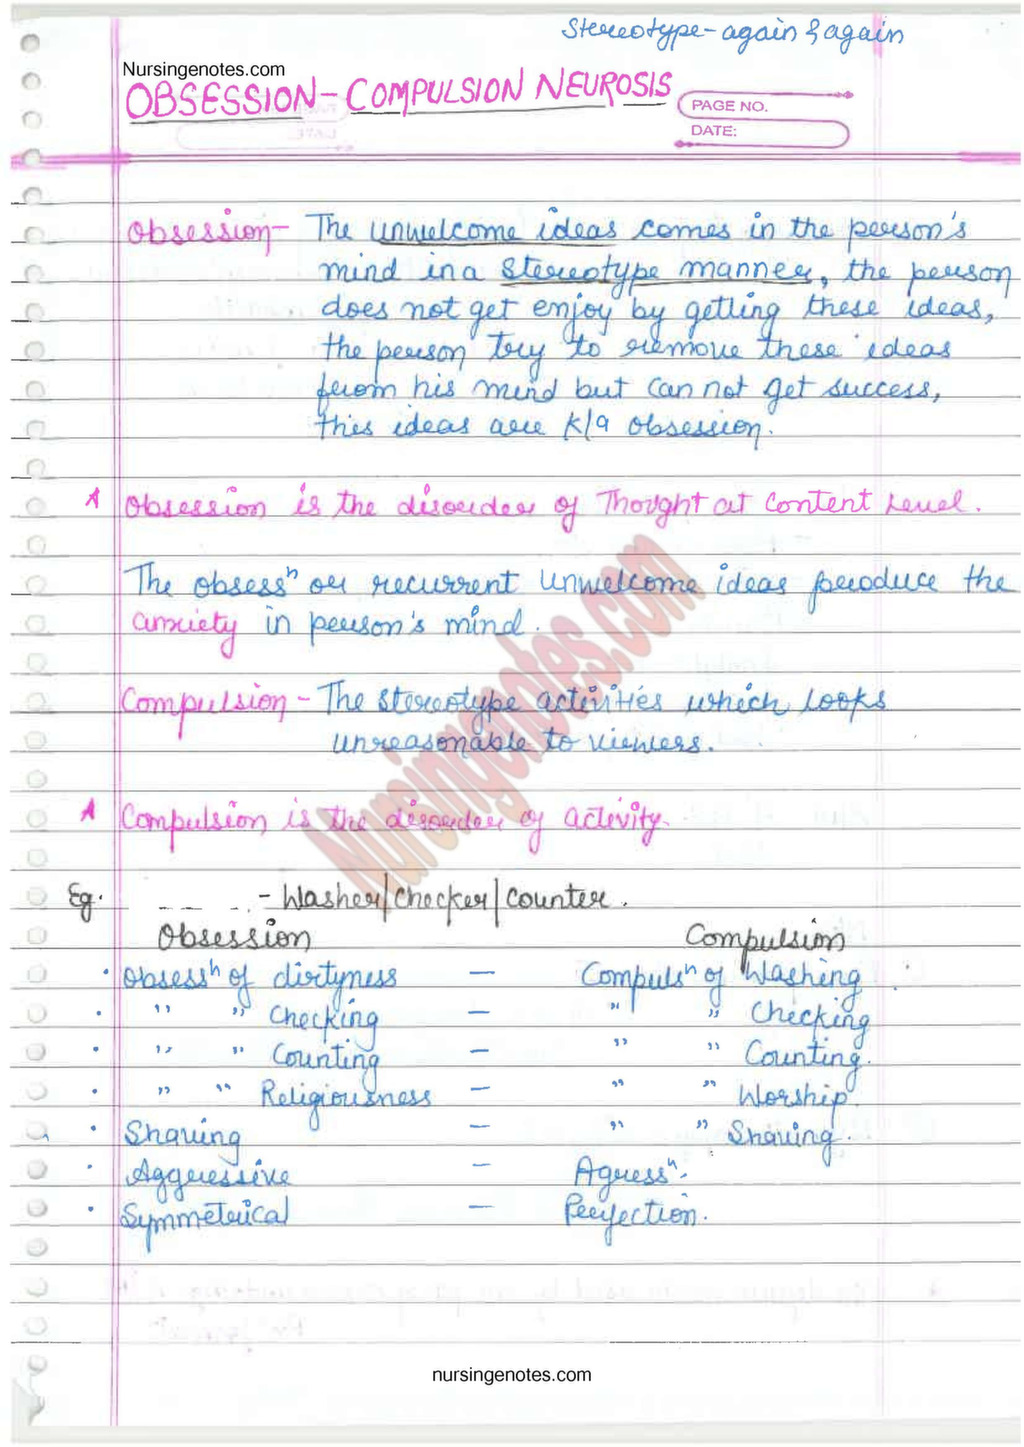 Stereotype - again & again
Nursingenotes.com
OBSESSION - COMPULSION NEUROSIS
PAGE NO.
DATE:
Obsession - The unwelcome ideas comes in the person's
mind in a stereotype manner, the person
does not get enjoy by getting these ideas,
the person try to remove these ideas
from his mind but can not get success,
this ideas are k/a obsession.
Obsession is the disorder of Thought at Content Level.
The obsessⁿ or recurrent unwelcome ideas produce the
anxiety in person's mind.
Compulsion - The stereotype activities which looks
unreasonable to viewers.
Compulsion is the disorder of activity.
Nursingenotes.com
Eg. - Washer/Checker/Counter.
Obsession Compulsion
• Obsessⁿ of dirtyness - Compulsⁿ of Washing
• " " Checking - " " Checking
• " " Counting - " " Counting.
• " " Religiousness - " " Worship.
• Shaving - " " Shaving.
• Aggressive - Agressⁿ.
• Symmetrical - Perfection.
nursingenotes.com